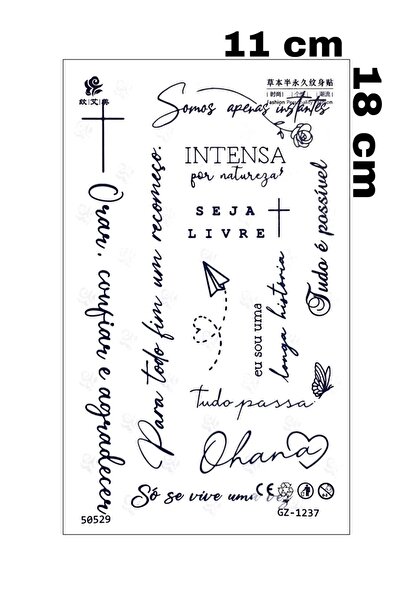 11 cm
18 cm
纹艾美
草本半永久纹身贴
时尚 | 个性 | 潮流
Fashion Personality Passion
Somos apenas instantes
INTENSA
por natureza
SEJA
LIVRE
Tudo é possível
Orar, confiar e agradecer
Para todo fim um recomeço.
eu sou uma
longa historia
tudo passa.
Ohana
Só se vive uma vez
CE
50529
GZ-1237